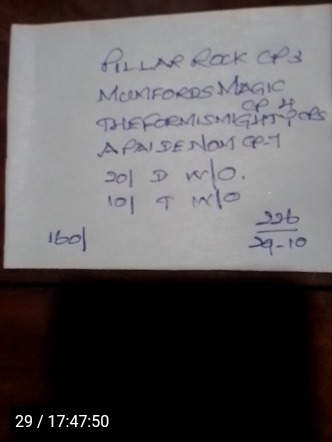 PILLAR ROCK CP 3
MUMFORDS MAGIC
CP 4
THEFORMISMIGHTY CP5
APAIDENOM CP-7
20/ D W/O.
10/ T W/O
160/
226
29-10
29 / 17:47:50